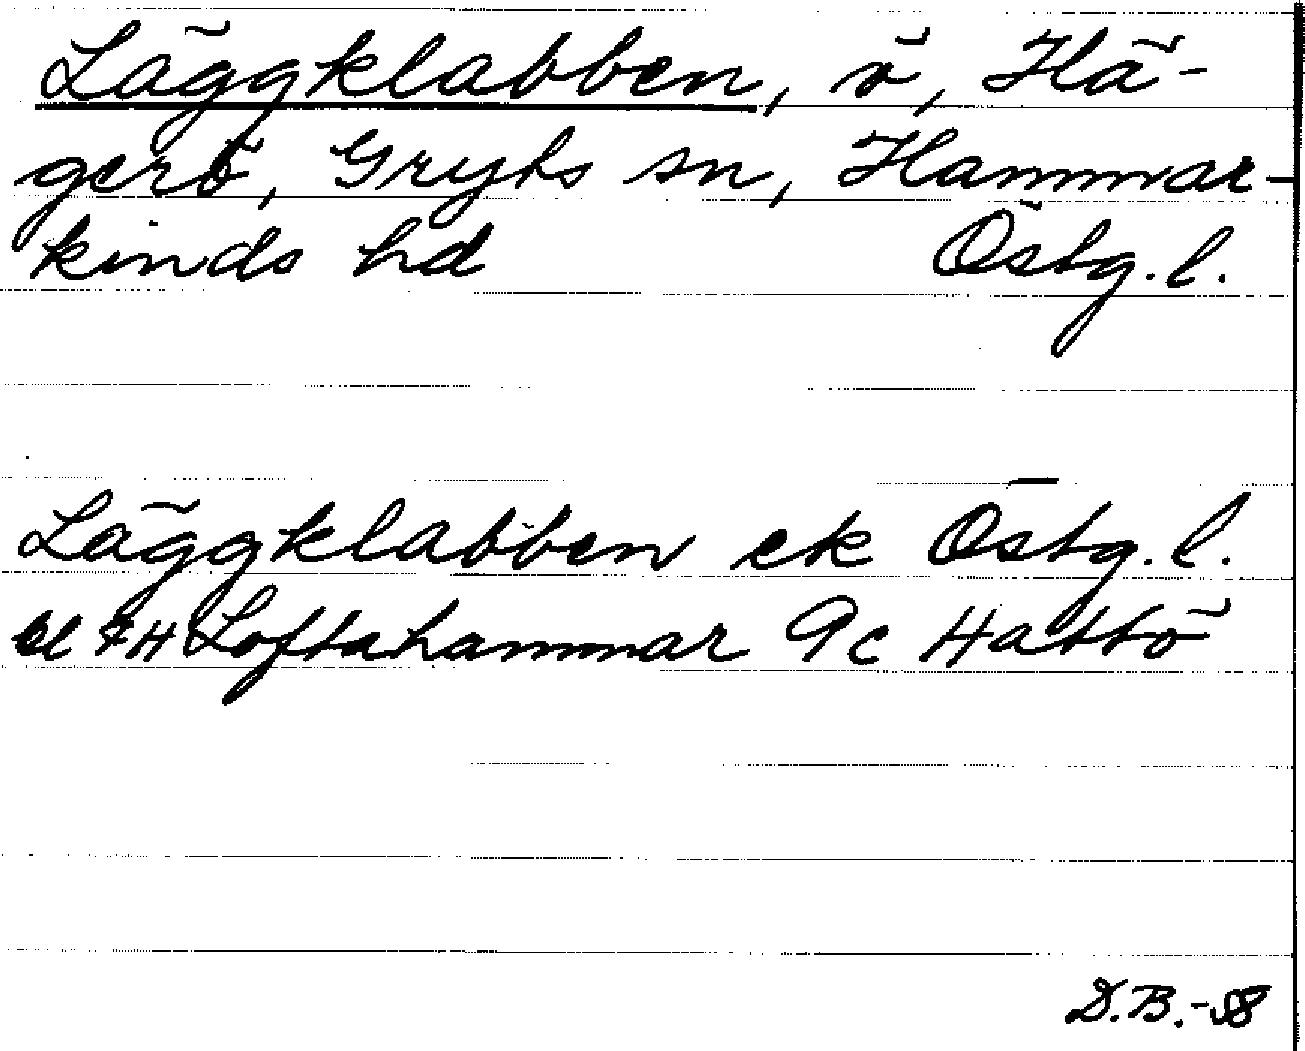 Läggklabben, ö, Hä-
gerö, Gryts sn, Hammar-
kinds hd Östg. l.
Läggklabben ek Östg. l.
bl 7H Loftahammar 9c Hattö
D.B.-58